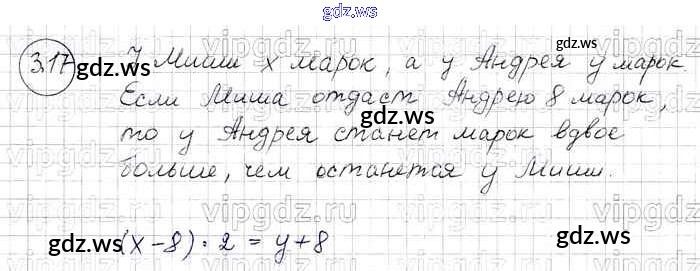 gdz.ws
3.17 У Миши x марок, а у Андрея y марок.
gdz.ws
gdz.ws
Если Миша отдаст Андрею 8 марок,
то у Андрея станет марок вдвое
больше, чем останется у Миши.
(x-8) : 2 = y+8
gdz.ws
gdz.ws
vipgdz.ru